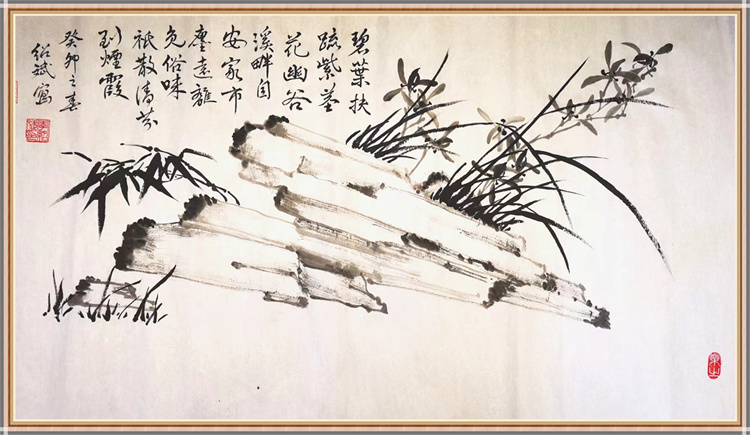 碧葉扶
疏紫莖
花幽谷
溪畔自
安家市
塵遠離
免俗味
祇散清芬
到煙霞
癸卯之春
紹斌寫